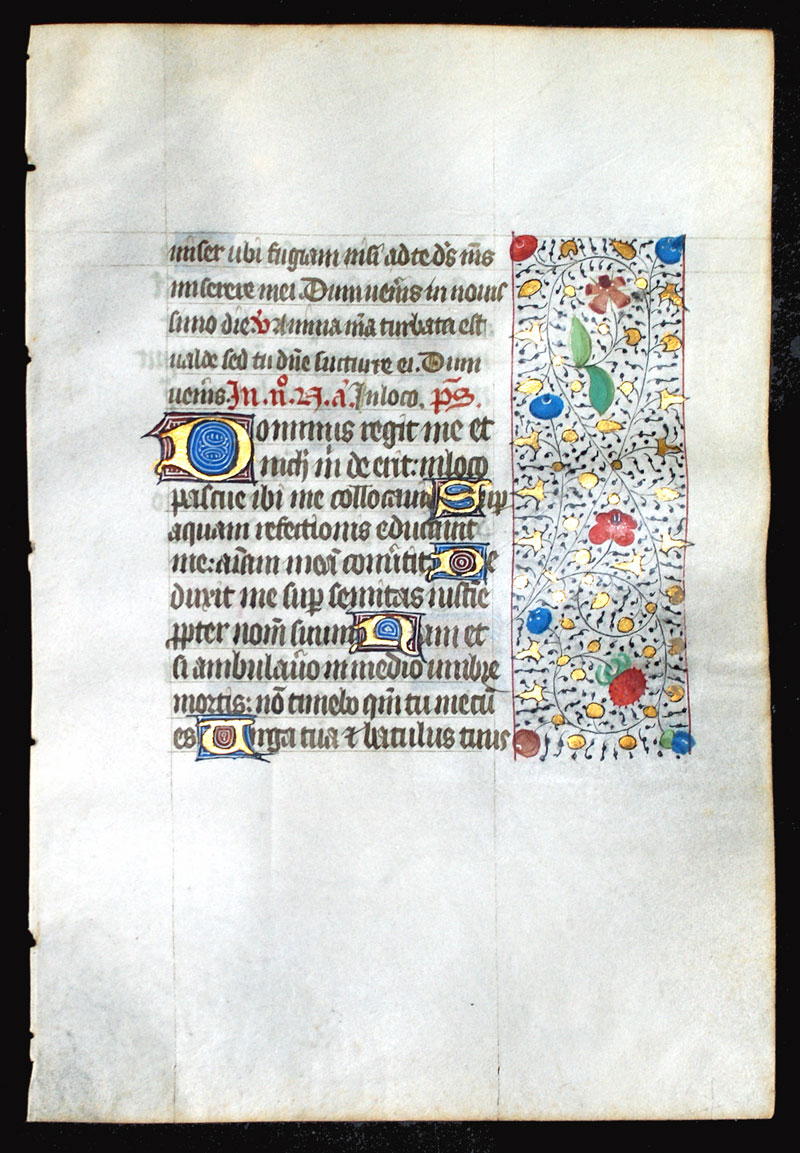 miser ubi fugiam nisi ad te ds ms
miserere mei. Dum ueneris in nouis
simo die V Anima mea turbata est
ualde sed tu dne succurre ei. Dum
ueneris In .ii. N. a. In loco. ps.
Dominus regit me et
nichil m deerit: in loco
pascue ibi me collocauit Sup
aquam refectionis educauit
me: aiam meā conuertit De
duxit me sup semitas iusticie
ppter nom suum Nam et
si ambulauero in medio umbre
mortis: nō timebo qm tu mecū
es Uirga tua ⁊ baculus tuus